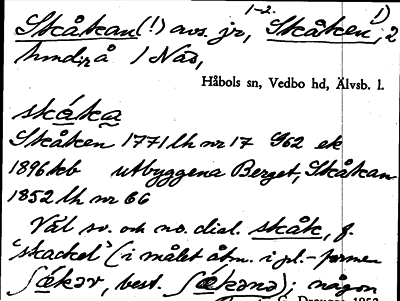 1-2. 1)
Skåkan(!) avs. jr, Skåken, 2
hmd:r å 1 Näs,
Håbols sn, Vedbo hd, Älvsb. l.
skáka
Skåken 1771 lh nr 17 962 ek
1896 kb utbyggena Berget, Skåkan
1852 lh nr 66
Väl sv. och no. dial. skåk, f.
"skackel" (i målet åtm. i pl.-formen
ʃákər, best. ʃákənə); någon